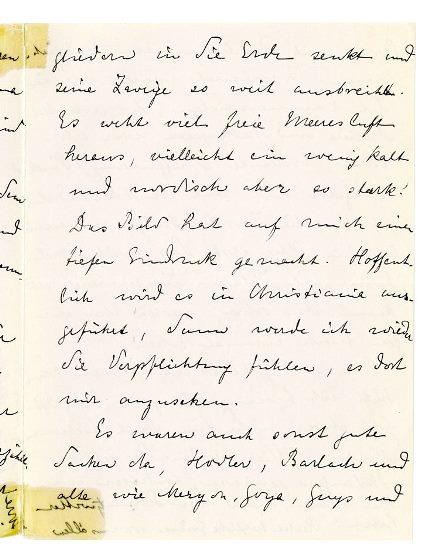 gliedern in die Erde senkt und
seine Zweige so weit ausbreitet.
Es weht viel freie Meeresluft
heraus, vielleicht ein wenig kalt
und nordisch aber so stark!
Das Bild hat auf mich einen
tiefen Eindruck gemacht. Hoffent-
lich wird es in Christiania aus-
geführt, dann werde ich wieder
die Verpflichtung fühlen, es dort
mir anzusehen.
Es waren auch sonst gute
Sachen da, Hodler, Barlach und
alte wie Meryon, Goya, Guys und